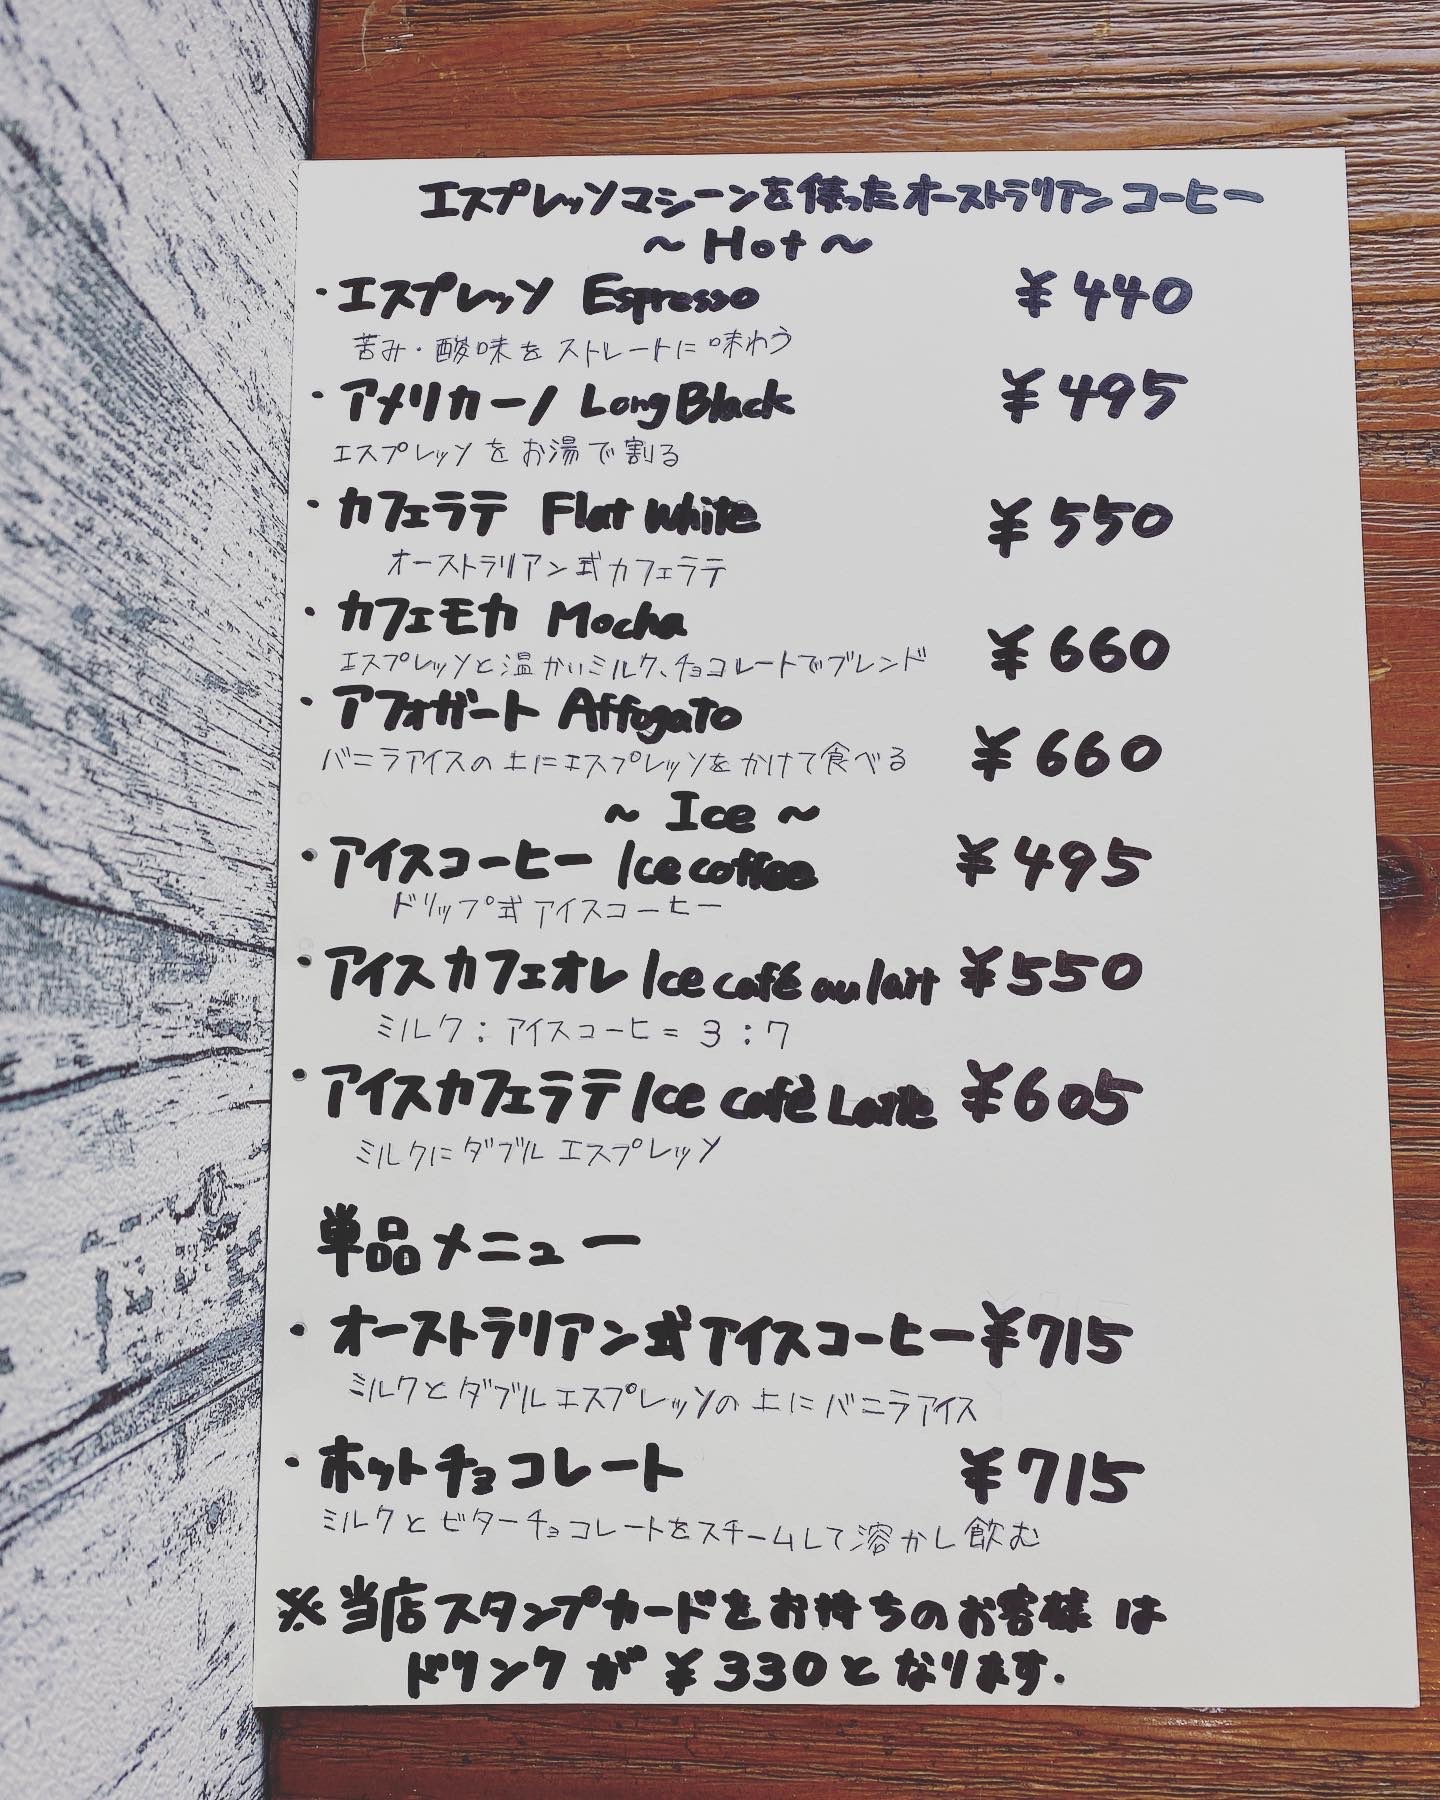 エスプレッソマシーンを使ったオーストラリアンコーヒー
～Hot～
・エスプレッソ Espresso ¥440
苦み・酸味をストレートに味わう
・アメリカーノ Long Black ¥495
エスプレッソをお湯で割る
・カフェラテ Flat White ¥550
オーストラリアン式カフェラテ
・カフェモカ Mocha ¥660
エスプレッソと温かいミルク、チョコレートでブレンド
・アフォガート Affogato ¥660
バニラアイスの上にエスプレッソをかけて食べる
～Ice～
・アイスコーヒー Ice coffee ¥495
ドリップ式アイスコーヒー
・アイスカフェオレ Ice café au lait ¥550
ミルク:アイスコーヒ=3:7
・アイスカフェラテ Ice cafè Latte ¥605
ミルクにダブルエスプレッソ
単品メニュー
・オーストラリアン式アイスコーヒー ¥715
ミルクとダブルエスプレッソの上にバニラアイス
・ホットチョコレート ¥715
ミルクとビターチョコレートをスチームして溶かし飲む
※当店スタンプカードをお持ちのお客様は
ドリンクが¥330となります.